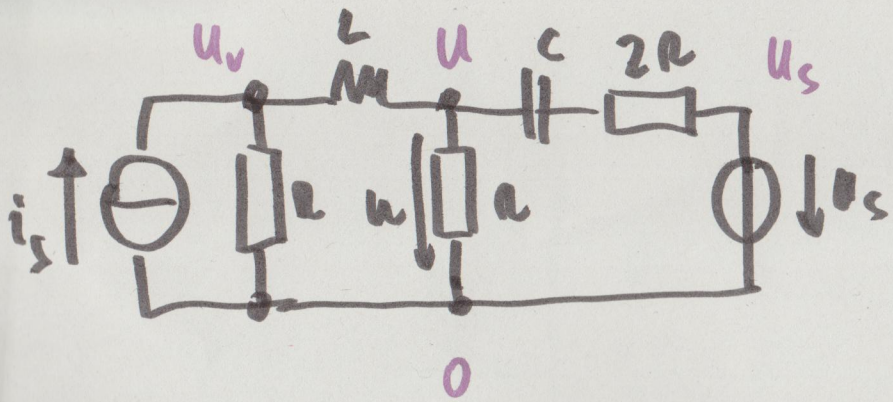 Uv L U C 2R Us
is R u R us
0